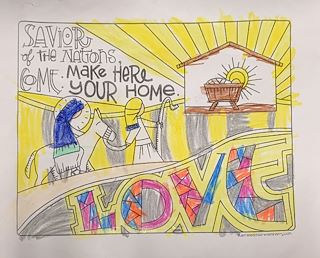 SAVIOR
of the NATIONS,
COME. MAKE HERE
YOUR HOME.
LOVE